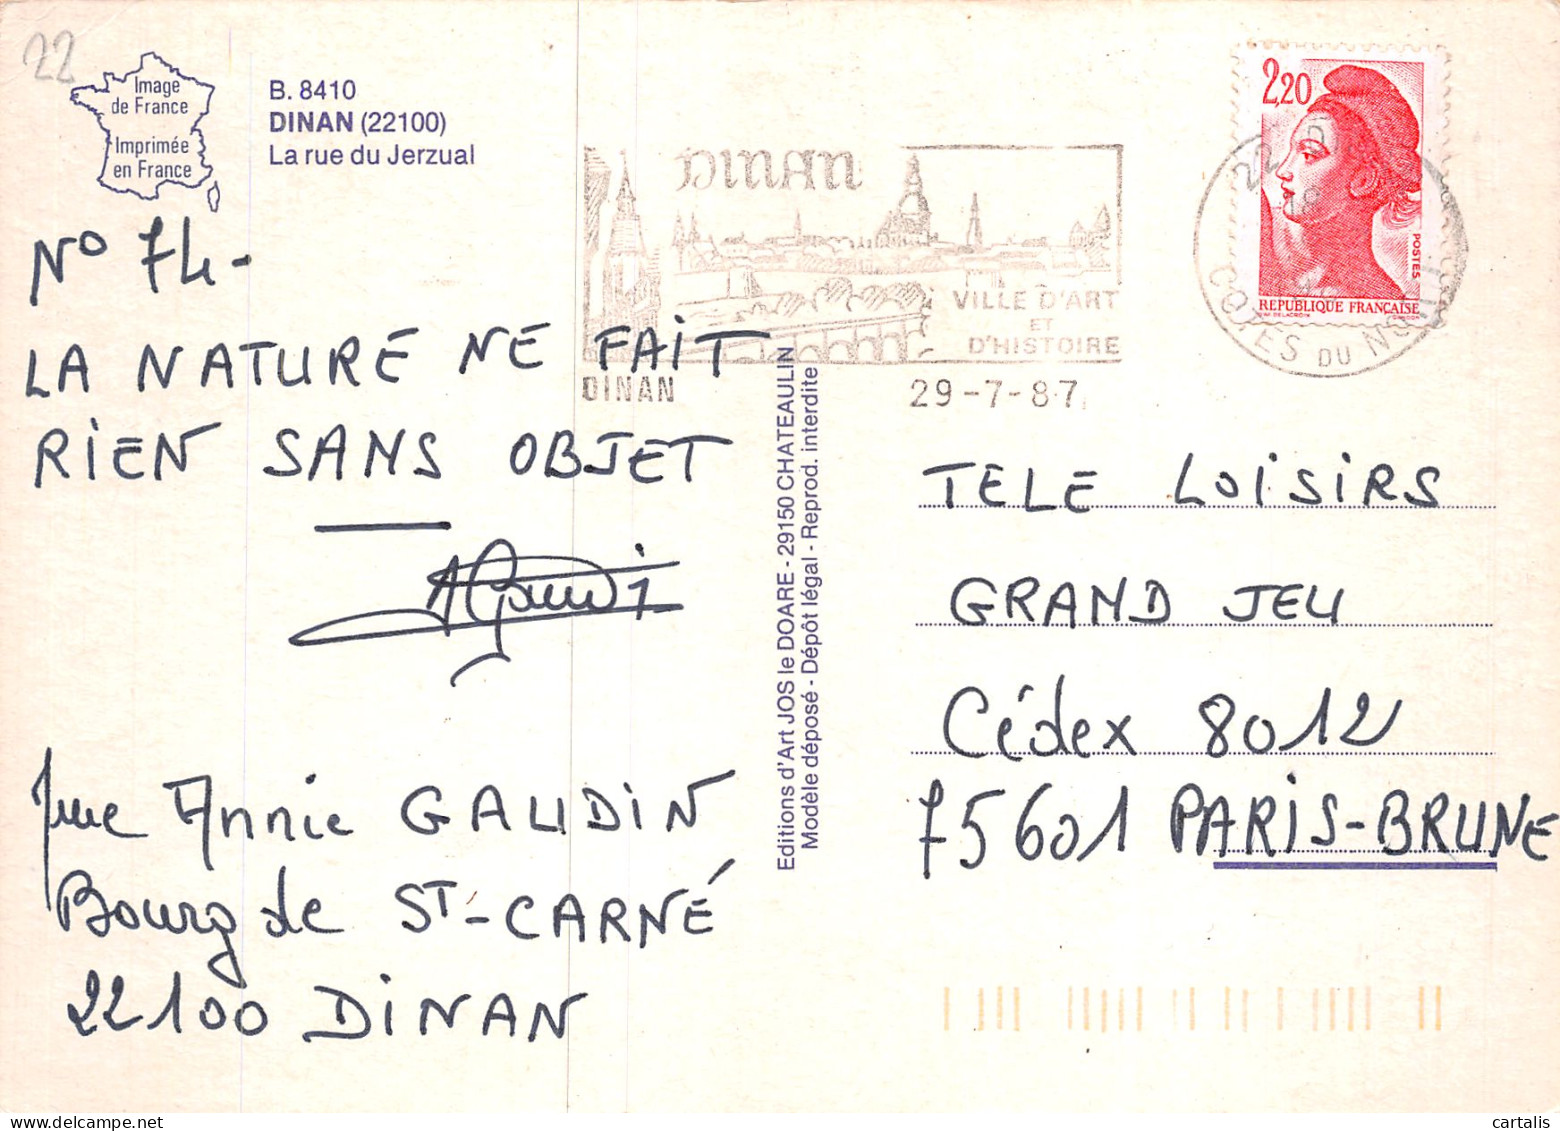 22
Image
de France
Imprimée
en France
B. 8410
DINAN (22100)
La rue du Jerzual
DINAN
VILLE D'ART
ET
D'HISTOIRE
DINAN
29-7-87
2,20
POSTES
REPUBLIQUE FRANÇAISE
22
COTES DU NORD
N° 74-
LA NATURE NE FAIT
RIEN SANS OBJET
Mme Annie GAUDIN
Bourg de ST-CARNÉ
22100 DINAN
Editions d'Art JOS le DOARE - 29150 CHATEAULIN
Modèle déposé - Dépôt légal - Reprod. interdite
TELE LOISIRS
GRAND JEU
Cédex 8012
75601 PARIS-BRUNE
cartalis